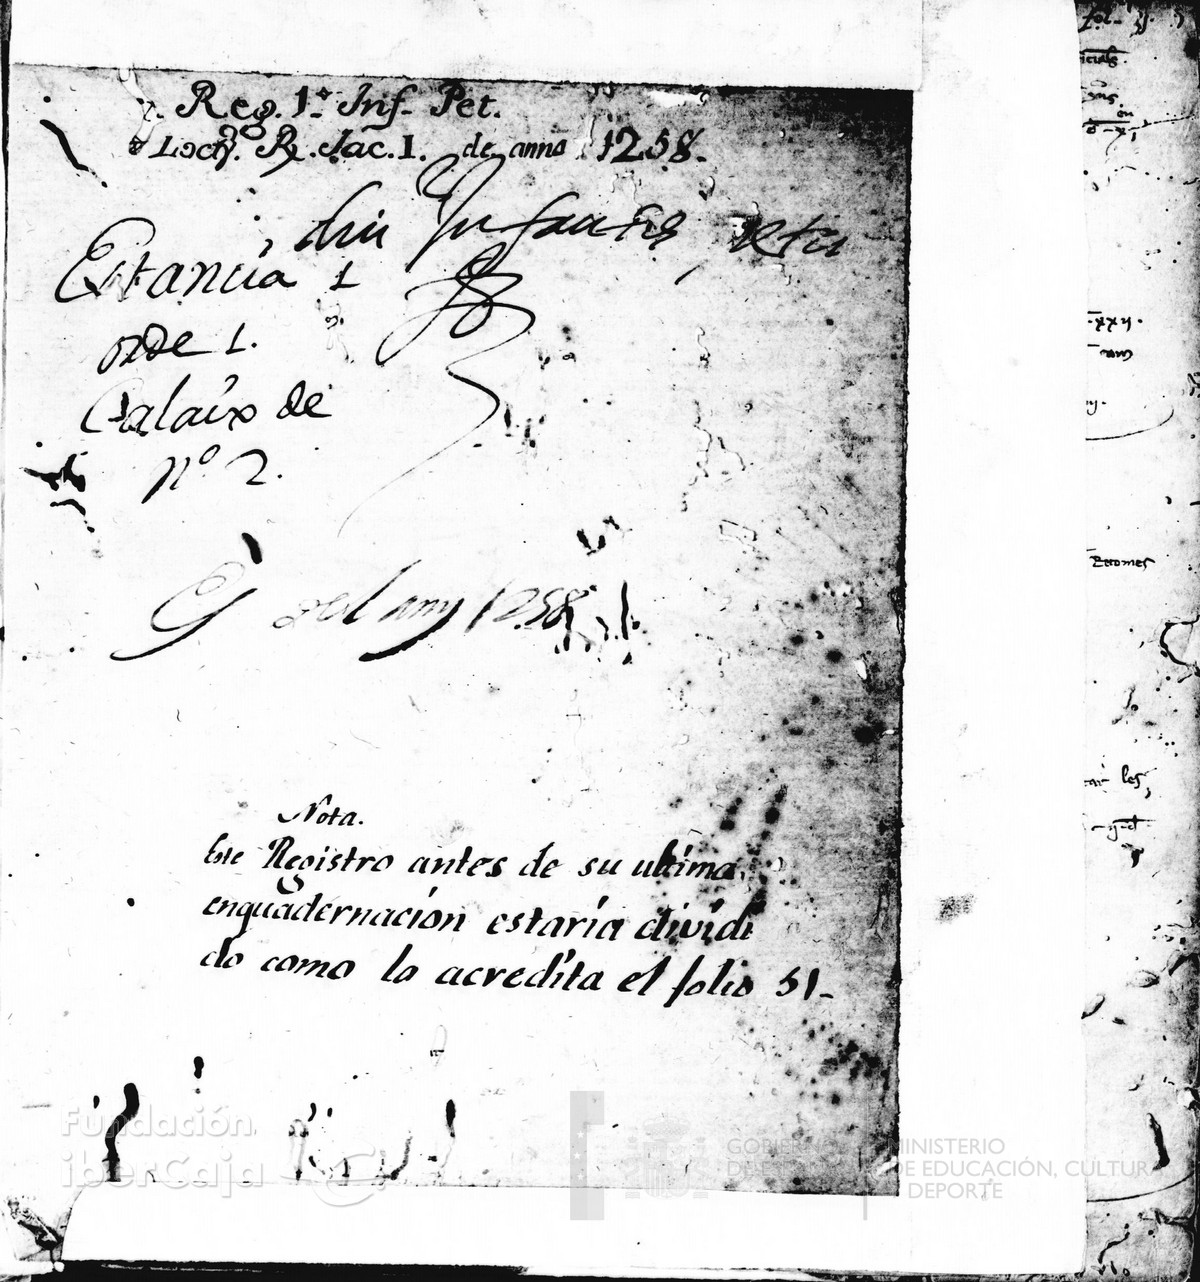 Reg. 1.º Inf. Pet.
R. Jac. 1. de anno 1258.
dni Infantis Petri
Estancia 1
orde 1.
Calaix de
nº 2.
Es del any 1258
Nota.
Este Registro antes de su ultima
enquadernación estaría dividi
do como lo acredita el folio 51-
Fundación
iberCaja
GOBIERNO
DE ESPAÑA
MINISTERIO
DE EDUCACIÓN, CULTURA
Y DEPORTE
fol.
-xxij.
les,